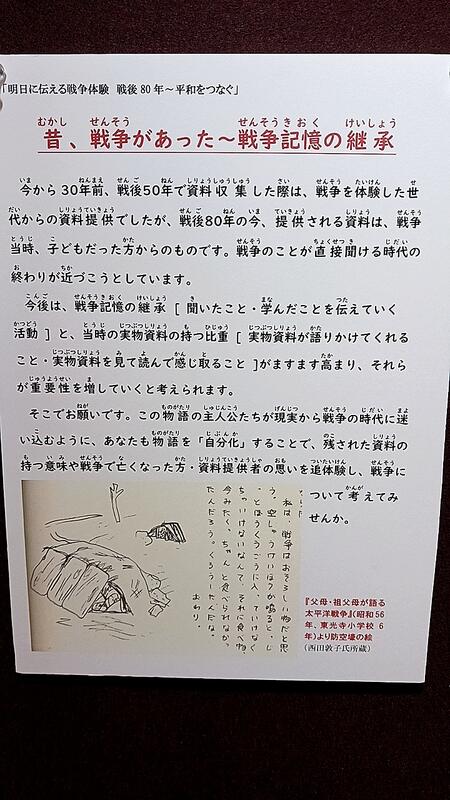 「明日に伝える戦争体験 戦後80年～平和をつなぐ」
昔、戦争があった～戦争記憶の継承
今から30年前、戦後50年で資料収集した際は、戦争を体験した世
代からの資料提供でしたが、戦後80年の今、提供される資料は、戦争
当時、子どもだった方からのものです。戦争のことが直接聞ける時代の
終わりが近づこうとしています。
今後は、戦争記憶の継承[聞いたこと・学んだことを伝えていく
活動]と、当時の実物資料の持つ比重[実物資料が語りかけてくれる
こと・実物資料を見て読んで感じ取ること]がますます高まり、それら
が重要性を増していくと考えられます。
そこでお願いです。この物語の主人公たちが現実から戦争の時代に迷
い込むように、あなたも物語を「自分化」することで、残された資料の
持つ意味や戦争で亡くなった方・資料提供者の思いを追体験し、戦争に
ついて考えてみ
せんか。
私は、戦争はおそろしい物だと思
う。空しゅうけいほうが鳴ると、じ
っとぼうくうごうに入っていけなく
ちゃいけないなんて、それに食べ物
今みたく、ちゃんと食べられなか
たんだろう。くろうしたんだな。
おわり。
『父母・祖父母が語る
太平洋戦争』(昭和56
年、東光寺小学校 6
年)より防空壕の絵
(西田敦子氏所蔵)